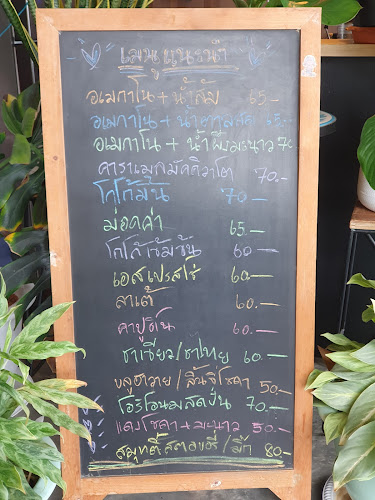 เมนูแนะนำ
อเมกาโน+น้ำส้ม 65.-
อเมกาโน+น้ำตาลสด 65.-
อเมกาโน+น้ำผึ้งมะนาว 70
คาราเมลมัคคิวาโต 70.-
โกโก้มิ้น 70.-
ม่อคค่า 65.-
โกโก้เข้มข้น 60.-
เอสเปรสโซ่ 60.-
ลาเต้ 60.-
คาปูชิโน 60.-
ชาเขียว/ชาไทย 60.-
บลูฮาวาย/ลิ้นจี่โซดา 50.-
โอริโอนมสดปั่น 70.-
แดงโซดา+มะนาว 50.-
สมูทตี้ สตอเบอรี่/ 80.-